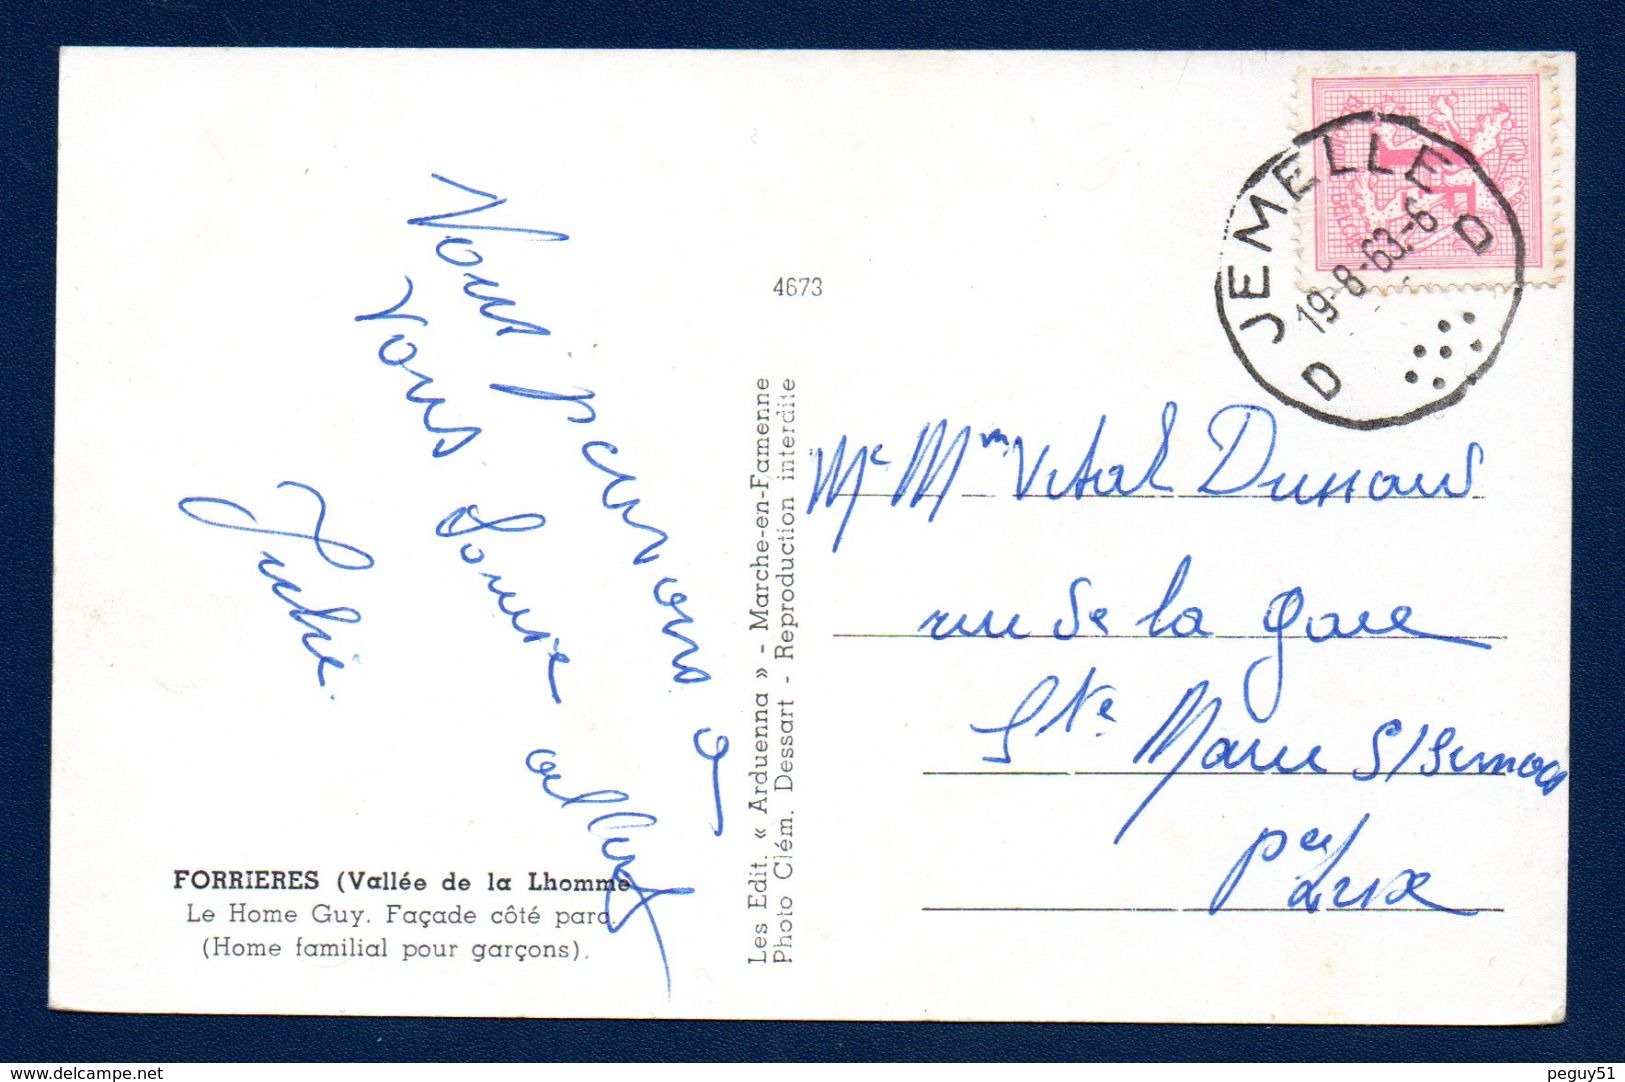 Nous pensons à
vous
4673
Les Edit. « Arduenna » - Marche-en-Famenne
Photo Clém. Dessart - Reproduction interdite
FORRIERES (Vallée de la Lhomme
Le Home Guy. Façade côté parc.
(Home familial pour garçons).
JEMELLE
19-8-63.-6
D D
1F
Mr Mme Vital
rue de la Gare
Ste Marie S/Semois
Lux
delcampe.net
peguy51